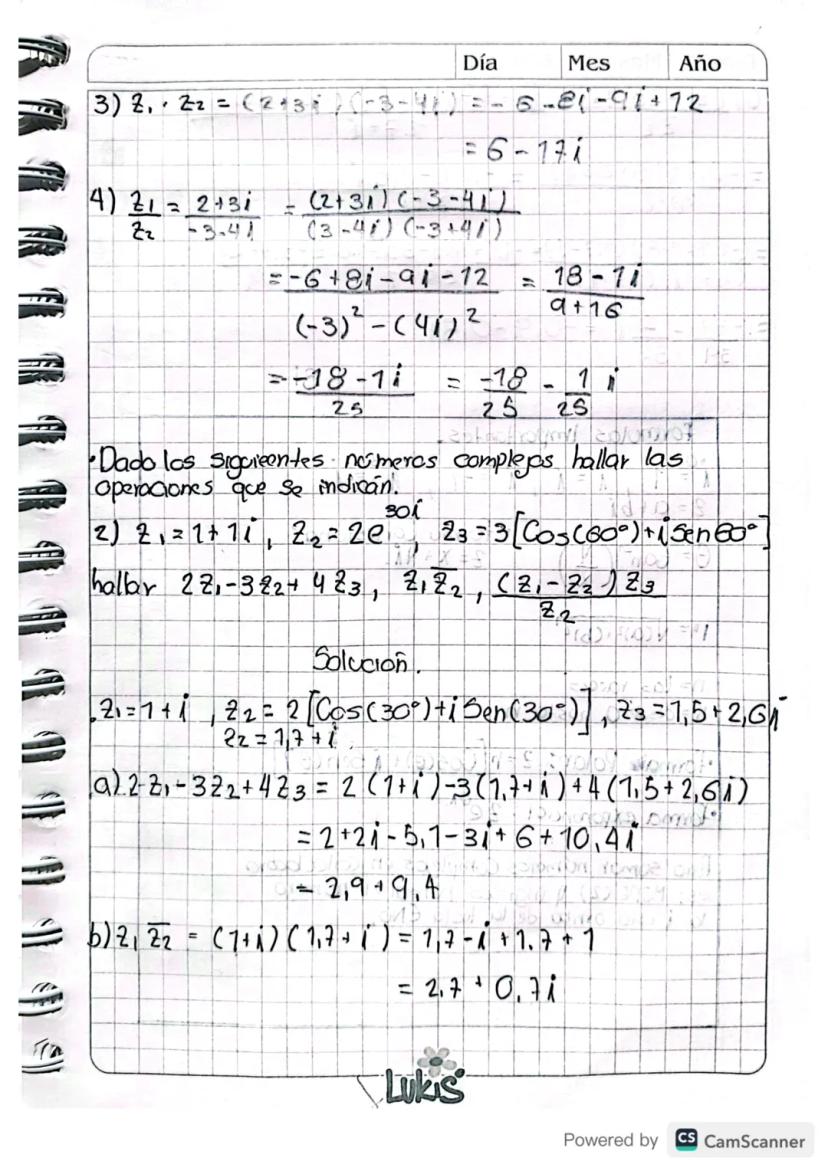 Día Mes Año
3) Z₁ · Z₂ = (2+3i)(-3-4i) = -6-8i-9i+12
= 6-17i
4) Z₁/Z₂ = 2+3i/-3-4i = (2+3i)(-3-4i)/(3-4i)(-3+4i)
= -6+8i-9i-12/(-3)²-(4i)² = 18-1i/9+16
= -18-1i/25 = -18/25 - 1/25 i
·Dado los siguientes números complejos hallar las
operaciones que se indican.
2) Z₁=1+1i, Z₂=2e^30i, Z₃=3[Cos(60°)+i Sen60°]
hallar 2Z₁-3Z₂+4Z₃, Z₁Z̅₂, (Z₁-Z₂)Z₃/Z₂
Solución.
.Z₁=1+i, Z₂=2[Cos(30°)+i Sen(30°)], Z₃=1,5+2,6i
Z₂=1,7+i.
a) 2·Z₁-3Z₂+4Z₃ = 2(1+i)-3(1,7+i)+4(1,5+2,6i)
= 2+2i-5,1-3i+6+10,4i
= 2,9+9,4
b) Z₁Z̅₂ = (1+i)(1,7+i) = 1,7-i+1.7+1
= 2,7+0,7i
LUKIS
Powered by CS CamScanner